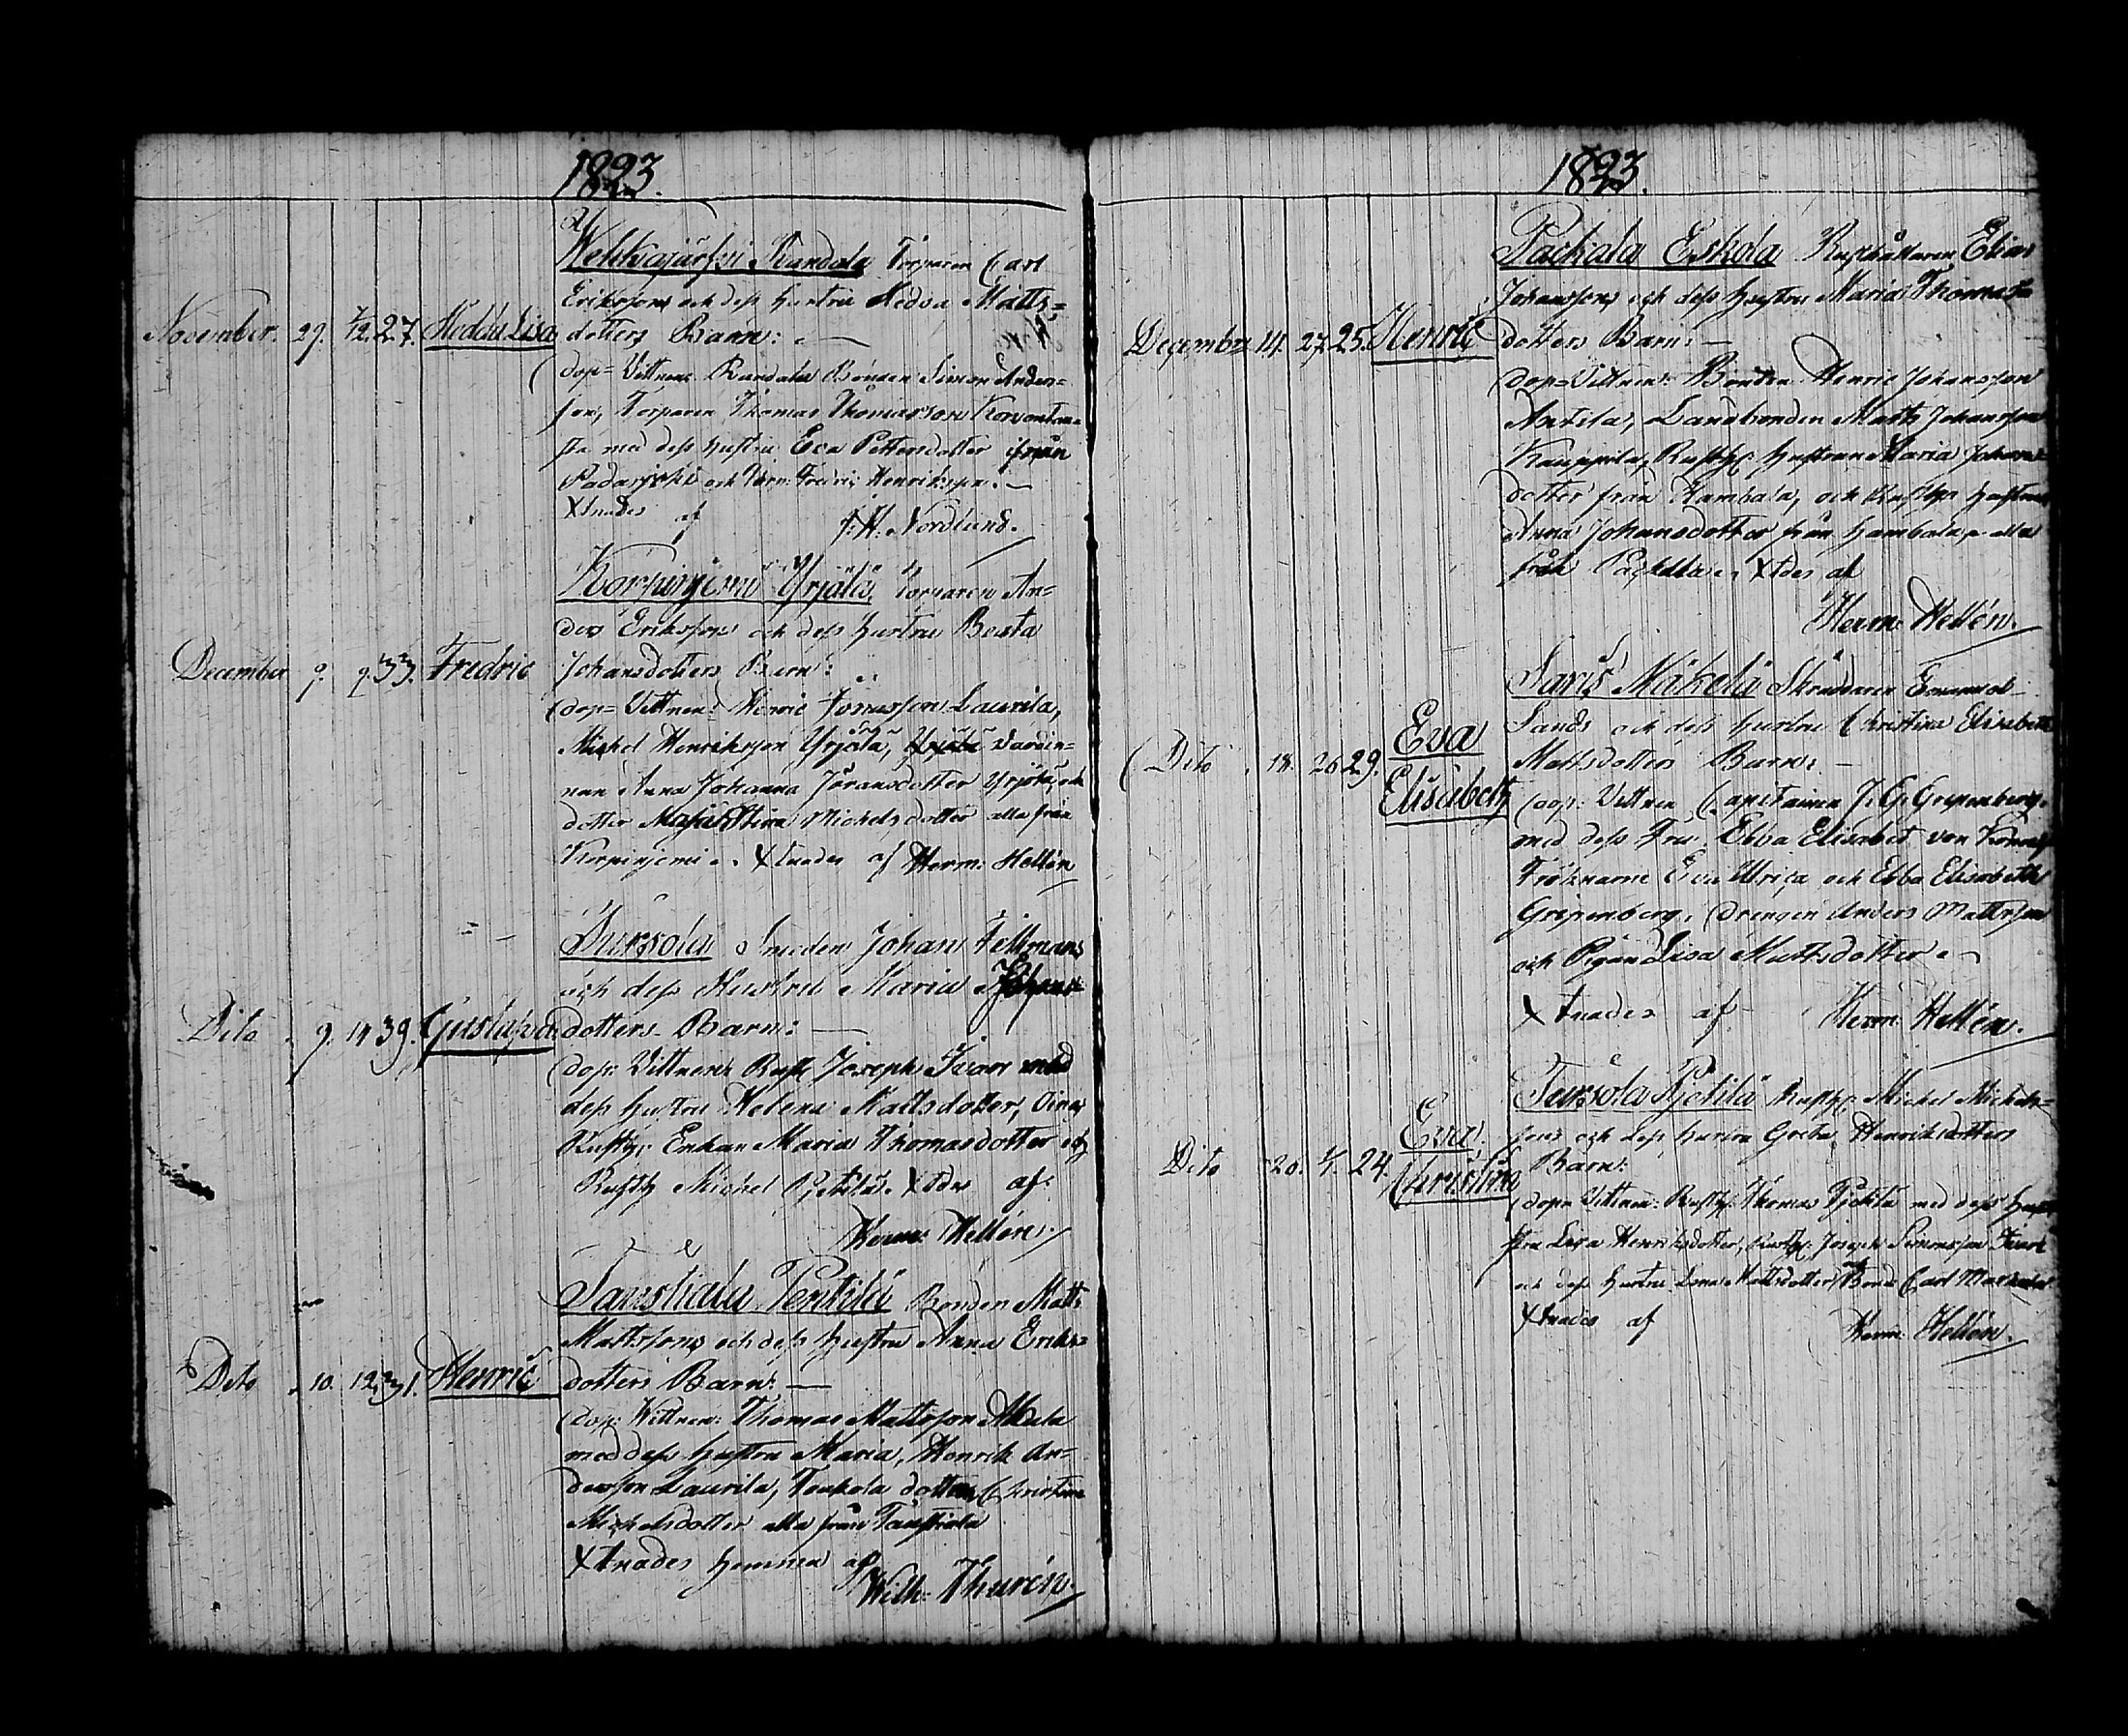 1823.
Wehkajärfvi Randala Torparen Carl
Eriksson och dess hustru Hedva Matts=
November. 29. 7/12. 27. Hedda Lisa dotters Barn:
dop= Vittnen Randala Bonden Simon Anders=
son, Torparen Thomas Thomasson
med dess hustru Eva Pettersdotter ifrån
Padasjoki och Fredric Henriksson.
Xtnades af J. H. Nordlund.
Korpinjemi Yrjälä, Torparen An=
ders Eriksson och dess hustru Beata
December 9. 9. 33. Fredric Johansdotters Barn:
dop= Vittnen: Henric Laurila,
Michel Henriksson Yrjälä, Värdin=
nan Anna Johanna Jöransdotter Yrjälä, och
dotter Maja Stina Michelsdotter alla från
Korpinjemi. Xtnades af Herm: Hellén
Tursola Smeden Johan Feltmans
och dess Hustru Maria Johans=
Dito 9. 14 39. Gustava dotters Barn:
dop: Vittnen Rusth Joseph Ivari med
dess hustru Helena Mattsdotter,
Rusth: Enkan Maria Thomasdotter och
Rusth Michel Pjetilä. Xtdes af
Herm: Hellén
Taustiala Penttilä Bonden Matts
Mattssons och dess hustru Anna Eriks=
Dito 10. 12. 31. Henric dotters Barn.
dop: Wittnen: Thomas Mattsson
med dess hustru Maria, Henrik An=
dersson Laurila, Toukola dotter Christina
Michelsdotter alla från Taustiala
Xtnades hemma af
Wilh: Thurén.
1823.
Pachala Eskola Rusthållaren Elias
Johanssons och dess hustru Maria Thomas
December 14. 27. 25. Henric dotters Barn:
dop= Vittnen: Bonden Henric Johansson
Anttila, Landbonden Matts Johansson
Kauppila, Rusth: hustrun Maria Johans=
dotter från Rambala, och Rusth: hustrun
Anna Johansdotter från hambala, alla
från Pachala. Xtdes af
Herm: Hellén.
Saris Mäkelä Skräddaren Emanuel
Sands och dess hustru Christina Elisabeth
Dito 18. 26 29. Eva Elisabeth Mattsdotters Barn:
dop: Vittnen Capitainen J. G. Gripenberg.
med dess Fru Ebba Elisabet von
Fröknarne Eva Ulrica och Ebba Elisabeth
Gripenberg, Drengen Anders Mattsson
och Pigan Lisa Mattsdotter.
Xtnades af Herm: Hellén.
Tursola Pjetilä Rusth: Michel Michels=
sons och dess hustru Greta Henriksdotters
Dito 20. 4/1. 24. Eva Christina Barn:
dop: Vittnen: Rusth: Thomas Pjetilä med dess hu=
stru Lisa Henriksdotter, Rusth: Joseph Simonsson Ivari
och dess hustru Lena Mattsdotter, Bond: Carl
Xtnades af Herm: Hellén.